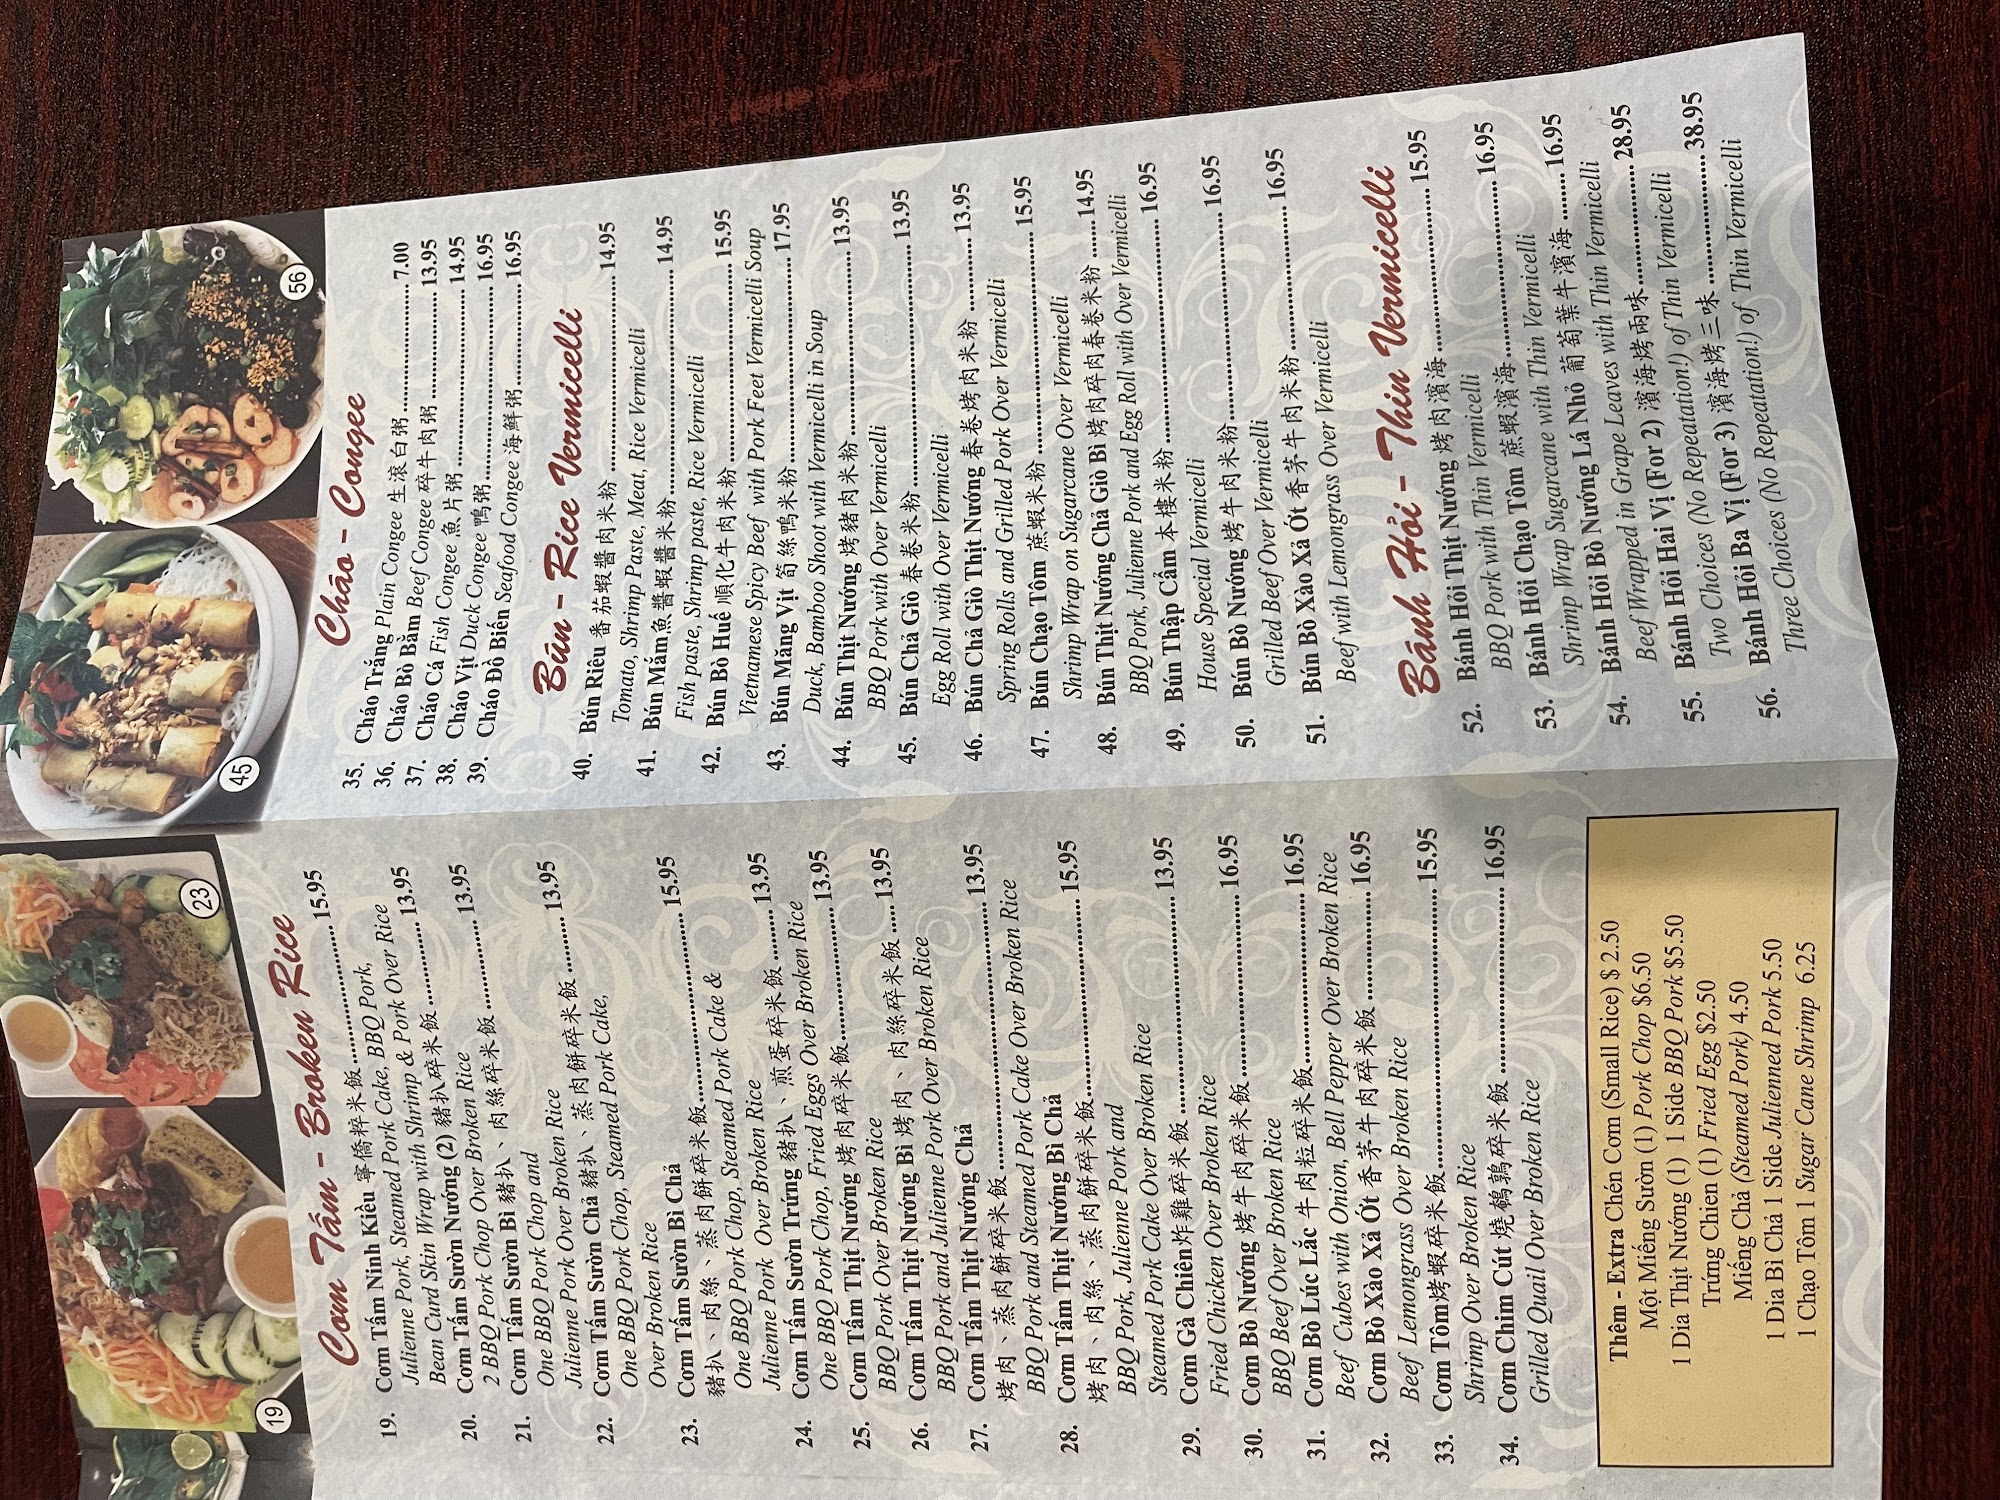 19
23
Cơm Tấm - Broken Rice
19. Cơm Tấm Ninh Kiều 寧僑粹米飯 15.95
Julienne Pork, Steamed Pork Cake, BBQ Pork,
Bean Curd Skin Wrap with Shrimp & Pork Over Rice
20. Cơm Tấm Sườn Nướng (2) 豬扒碎米飯 13.95
2 BBQ Pork Chop Over Broken Rice
21. Cơm Tấm Sườn Bì 豬扒、肉絲碎米飯 13.95
One BBQ Pork Chop and
Julienne Pork Over Broken Rice
22. Cơm Tấm Sườn Chả 豬扒、蒸肉餅碎米飯 13.95
One BBQ Pork Chop, Steamed Pork Cake,
Over Broken Rice
23. Cơm Tấm Sườn Bì Chả
豬扒、肉絲、蒸肉餅碎米飯 15.95
One BBQ Pork Chop, Steamed Pork Cake &
Julienne Pork Over Broken Rice
24. Cơm Tấm Sườn Trứng 豬扒、煎蛋碎米飯 13.95
One BBQ Pork Chop, Fried Eggs Over Broken Rice
25. Cơm Tấm Thịt Nướng 烤肉碎米飯 13.95
BBQ Pork Over Broken Rice
26. Cơm Tấm Thịt Nướng Bì 烤肉、肉絲碎米飯 13.95
BBQ Pork and Julienne Pork Over Broken Rice
27. Cơm Tấm Thịt Nướng Chả
烤肉、蒸肉餅碎米飯 13.95
BBQ Pork and Steamed Pork Cake Over Broken Rice
28. Cơm Tấm Thịt Nướng Bì Chả
烤肉、肉絲、蒸肉餅碎米飯 15.95
BBQ Pork, Julienne Pork and
Steamed Pork Cake Over Broken Rice
29. Cơm Gà Chiên 炸雞碎米飯 13.95
Fried Chicken Over Broken Rice
30. Cơm Bò Nướng 烤牛肉碎米飯 16.95
BBQ Beef Over Broken Rice
31. Cơm Bò Lúc Lắc 牛肉粒碎米飯 16.95
Beef Cubes with Onion, Bell Pepper Over Broken Rice
32. Cơm Bò Xào Xả Ớt 香茅牛肉碎米飯 16.95
Beef Lemongrass Over Broken Rice
33. Cơm Tôm 烤蝦碎米飯 15.95
Shrimp Over Broken Rice
34. Cơm Chim Cút 燒鵪鶉碎米飯 16.95
Grilled Quail Over Broken Rice
Thêm - Extra Chén Com (Small Rice) $ 2.50
Một Miếng Sườn (1) Pork Chop $6.50
1 Dia Thịt Nướng (1) 1 Side BBQ Pork $5.50
Trứng Chien (1) Fried Egg $2.50
Miếng Chả (Steamed Pork) 4.50
1 Dia Bì Chả 1 Side Julienned Pork 5.50
1 Chạo Tôm 1 Sugar Cane Shrimp 6.25
45
56
Cháo - Congee
35. Cháo Trắng Plain Congee 生滾白粥 7.00
36. Cháo Bò Bằm Beef Congee 碎牛肉粥 13.95
37. Cháo Cá Fish Congee 魚片粥 14.95
38. Cháo Vịt Duck Congee 鴨粥 16.95
39. Cháo Đồ Biển Seafood Congee 海鮮粥 16.95
Bún - Rice Vermicelli
40. Bún Riêu 番茄蝦醬肉米粉 14.95
Tomato, Shrimp Paste, Meat, Rice Vermicelli
41. Bún Mắm 魚醬蝦醬米粉 14.95
Fish paste, Shrimp paste, Rice Vermicelli
42. Bún Bò Huế 順化牛肉米粉 15.95
Vietnamese Spicy Beef with Pork Feet Vermicelli Soup
43. Bún Măng Vịt 筍絲鴨米粉 17.95
Duck, Bamboo Shoot with Vermicelli in Soup
44. Bún Thịt Nướng 烤豬肉米粉 13.95
BBQ Pork with Over Vermicelli
45. Bún Chả Giò 春卷米粉 13.95
Egg Roll with Over Vermicelli
46. Bún Chả Giò Thịt Nướng 春卷烤肉米粉 13.95
Spring Rolls and Grilled Pork Over Vermicelli
47. Bún Chạo Tôm 蔗蝦米粉 15.95
Shrimp Wrap on Sugarcane Over Vermicelli
48. Bún Thịt Nướng Chả Giò Bì 烤肉碎肉春卷米粉 14.95
BBQ Pork, Julienne Pork and Egg Roll with Over Vermicelli
49. Bún Thập Cẩm 本樓米粉 16.95
House Special Vermicelli
50. Bún Bò Nướng 烤牛肉米粉 16.95
Grilled Beef Over Vermicelli
51. Bún Bò Xào Xả Ớt 香茅牛肉米粉 16.95
Beef with Lemongrass Over Vermicelli
Bánh Hỏi - Thin Vermicelli
52. Bánh Hỏi Thịt Nướng 烤肉濱海 15.95
BBQ Pork with Thin Vermicelli
53. Bánh Hỏi Chạo Tôm 蔗蝦濱海 16.95
Shrimp Wrap Sugarcane with Thin Vermicelli
54. Bánh Hỏi Bò Nướng Lá Nho 葡萄葉牛濱海 16.95
Beef Wrapped in Grape Leaves with Thin Vermicelli
55. Bánh Hỏi Hai Vị (For 2) 濱海烤兩味 28.95
Two Choices (No Repetation!) of Thin Vermicelli
56. Bánh Hỏi Ba Vị (For 3) 濱海烤三味 38.95
Three Choices (No Repeatation!) of Thin Vermicelli